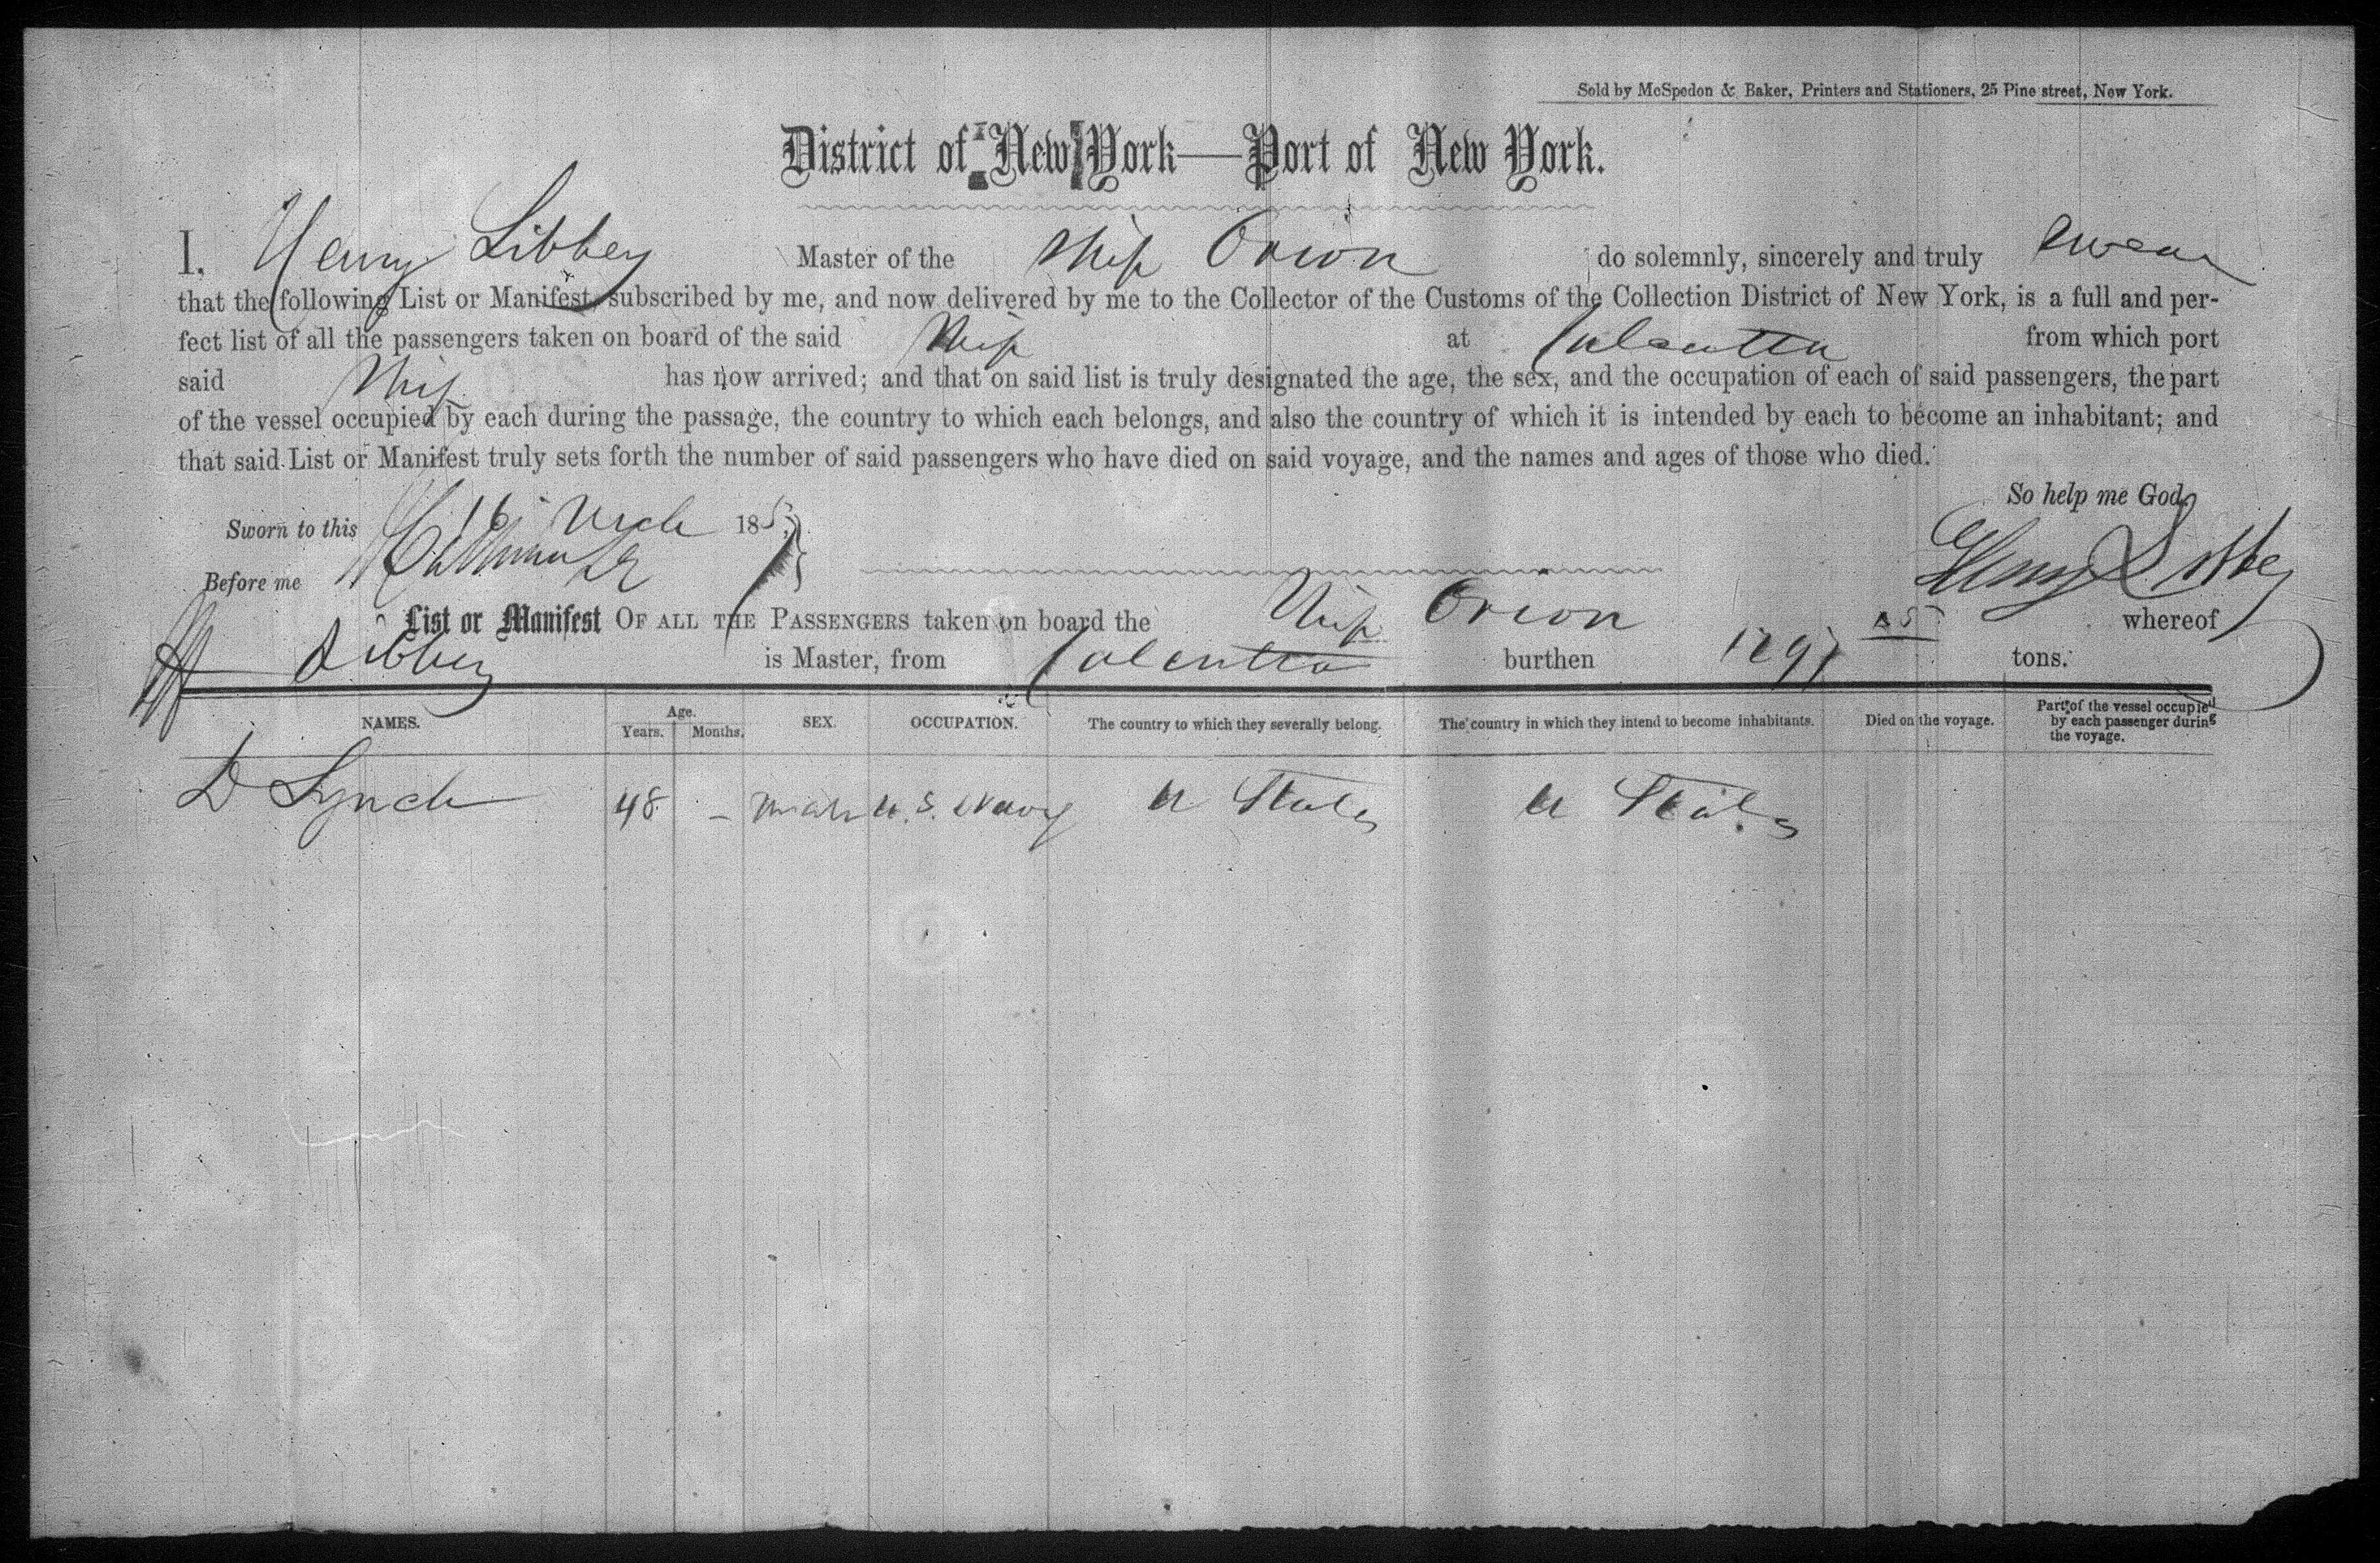 Sold by McSpedon & Baker, Printers and Stationers, 25 Pine street, New York.
District of New York—Port of New York.
I, Henry Libbey Master of the Ship Orion do solemnly, sincerely and truly swear
that the following List or Manifest, subscribed by me, and now delivered by me to the Collector of the Customs of the Collection District of New York, is a full and per-
fect list of all the passengers taken on board of the said Ship at Calcutta from which port
said Ship has now arrived; and that on said list is truly designated the age, the sex, and the occupation of each of said passengers, the part
of the vessel occupied by each during the passage, the country to which each belongs, and also the country of which it is intended by each to become an inhabitant; and
that said List or Manifest truly sets forth the number of said passengers who have died on said voyage, and the names and ages of those who died.
So help me God.
Sworn to this 16 Mch 185
Henry Libbey
Before me
List or Manifest OF ALL THE PASSENGERS taken on board the Ship Orion whereof
H Libbey is Master, from Calcutta burthen tons.
NAMES. Age. Years. Months. SEX. OCCUPATION. The country to which they severally belong. The country in which they intend to become inhabitants. Died on the voyage. Part of the vessel occupied by each passenger during the voyage.
D Lynch 48 – Male U.S. Navy U States U States